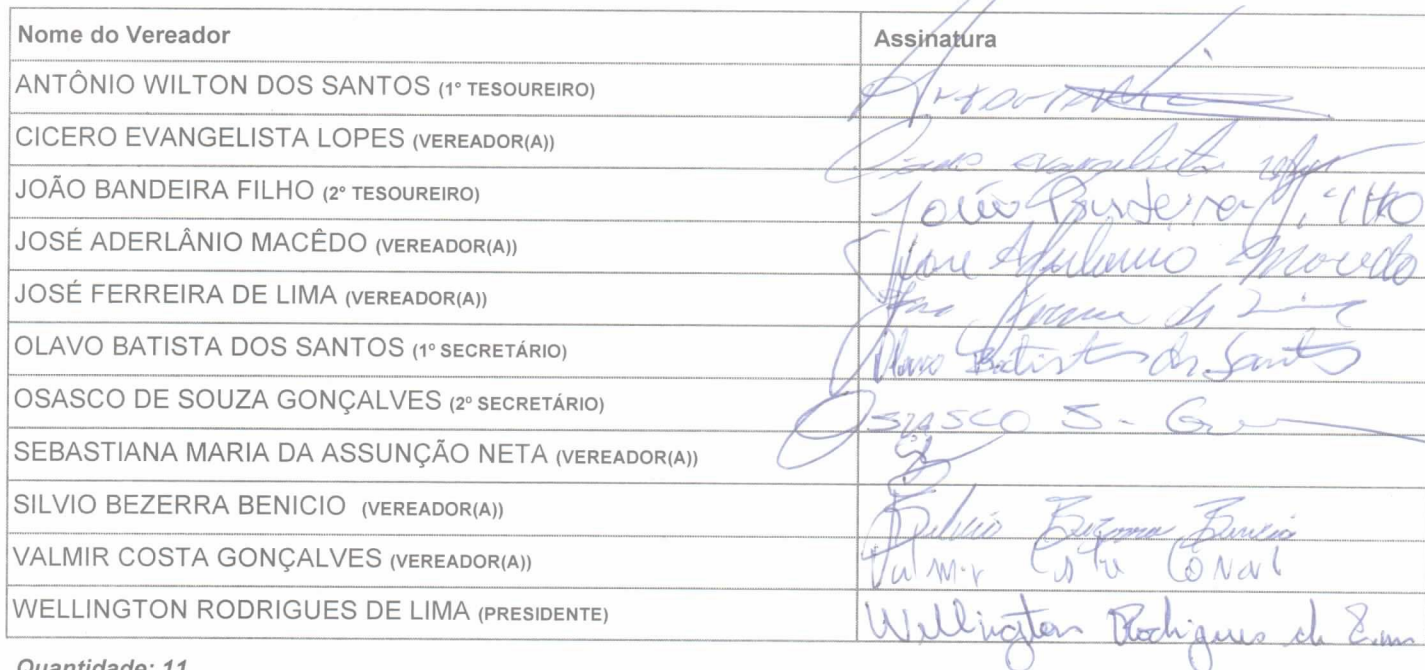 Nome do Vereador Assinatura
ANTÔNIO WILTON DOS SANTOS (1º TESOUREIRO)
CICERO EVANGELISTA LOPES (VEREADOR(A)) evangelista
JOÃO BANDEIRA FILHO (2º TESOUREIRO) João Bandeira FILHO
JOSÉ ADERLÂNIO MACÊDO (VEREADOR(A)) Jose Aderlanio Macedo
JOSÉ FERREIRA DE LIMA (VEREADOR(A)) de Lima
OLAVO BATISTA DOS SANTOS (1º SECRETÁRIO) Olavo Batista dos Santos
OSASCO DE SOUZA GONÇALVES (2º SECRETÁRIO) OSASCO S.
SEBASTIANA MARIA DA ASSUNÇÃO NETA (VEREADOR(A))
SILVIO BEZERRA BENICIO (VEREADOR(A)) Silvio Bezerra Benicio
VALMIR COSTA GONÇALVES (VEREADOR(A)) Valmir Costa
WELLINGTON RODRIGUES DE LIMA (PRESIDENTE) Wellington Rodrigues de Lima
Quantidade: 11